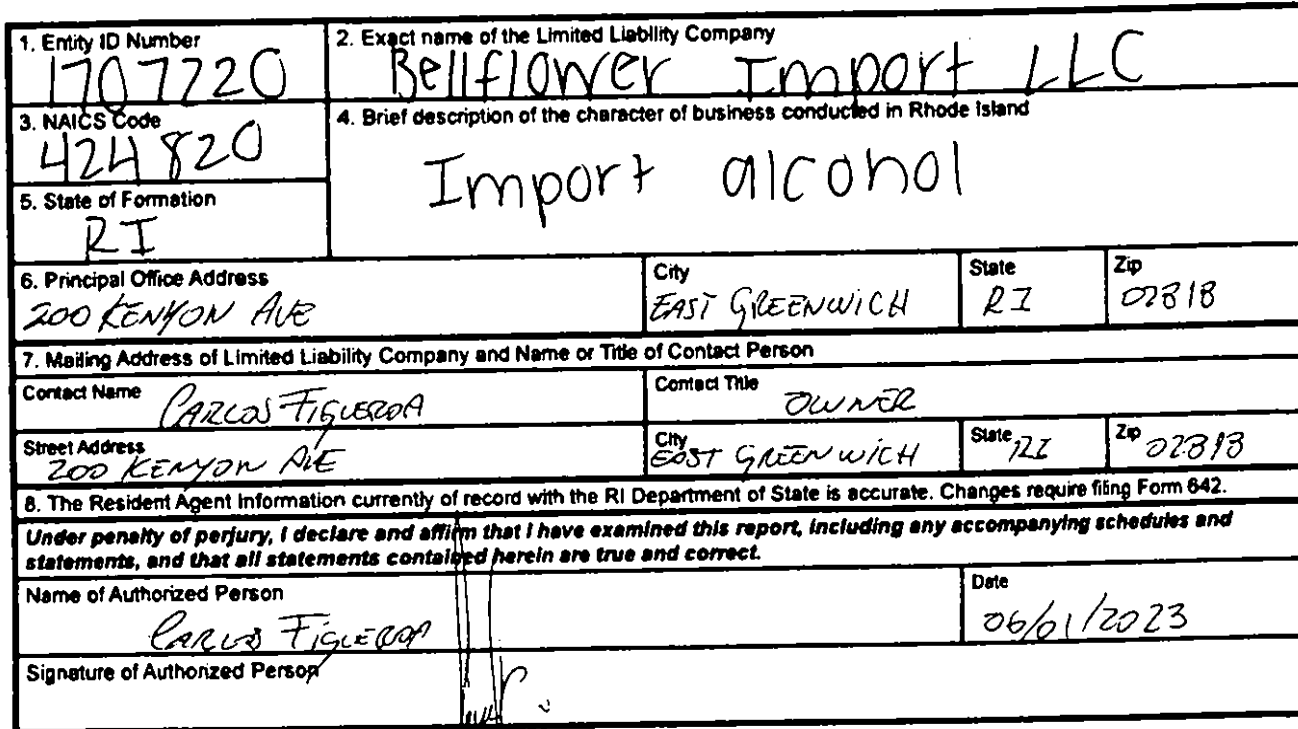 1. Entity ID Number
1707720
2. Exact name of the Limited Liability Company
Bellflower Import LLC
3. NAICS Code
424820
4. Brief description of the character of business conducted in Rhode Island
Import alcohol
5. State of Formation
RI
6. Principal Office Address
200 KENYON AVE
City
EAST GREENWICH
State
RI
Zip
02818
7. Mailing Address of Limited Liability Company and Name or Title of Contact Person
Contact Name CARLOS FIGUEROA
Contact Title OWNER
Street Address
200 KENYON AVE
City
EAST GREENWICH
State RI
Zip 02818
8. The Resident Agent Information currently of record with the RI Department of State is accurate. Changes require filing Form 642.
Under penalty of perjury, I declare and affirm that I have examined this report, including any accompanying schedules and
statements, and that all statements contained herein are true and correct.
Name of Authorized Person
CARLOS FIGUEROA
Date
06/01/2023
Signature of Authorized Person